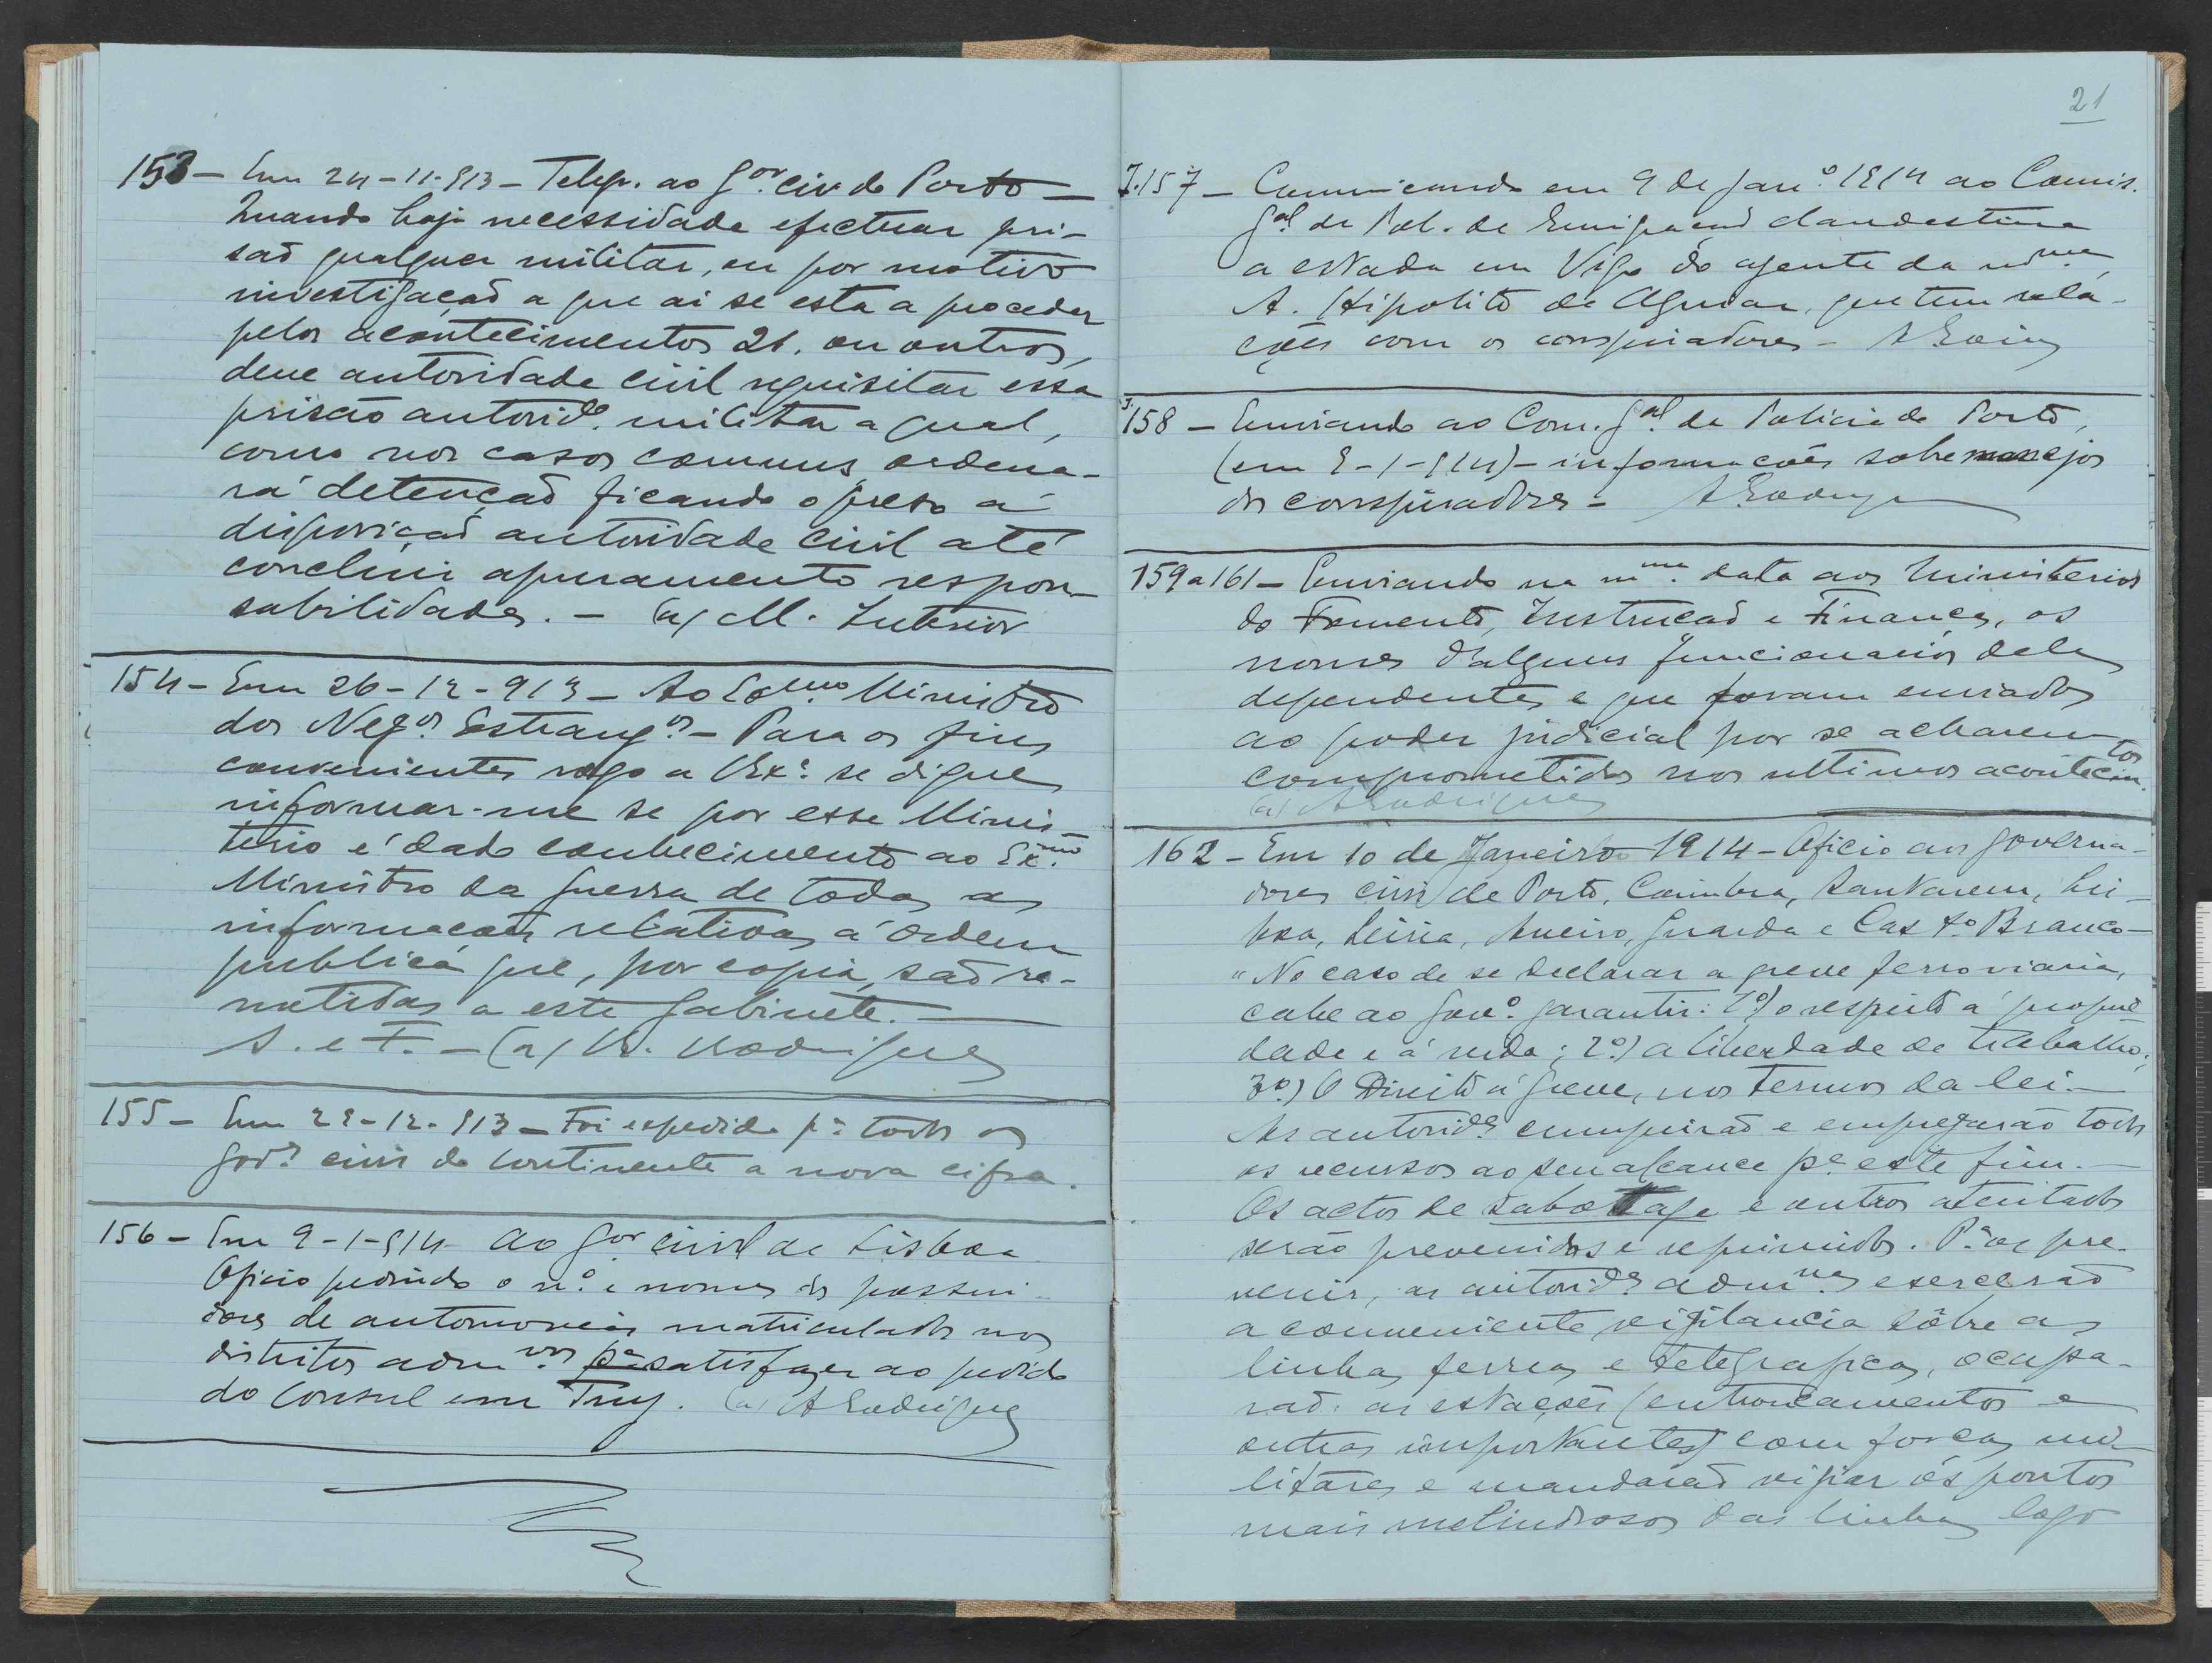 153 – Em 24-11-913 – Telegr. ao Gor. Civ do Porto –
Quando haja necessidade efectuar pri-
são qualquer militar, ou por motivo
investigação a que ai se está a proceder
pelos acontecimentos 21. ou outros,
deve autoridade civil requisitar essa
prisão autoride. militar a qual,
como nos casos comuns, ordena-
rá detenção ficando o preso á
disposição autoridade civil até
concluir apuramento respon-
sabilidades. – (a) M. Interior
154 – Em 26-12-913 – Ao Exmo Ministro
dos Negos. Estrangos. – Para os fins
convenientes rogo a V Exa. se digne
informar-me se por esse Minis-
terio é dado conhecimento ao Exmo.
Ministro da Guerra de todas as
informações relativas á ordem
publica que, por copia, são re-
metidas a este Gabinete. –
S. e F. – (a) R. Rodrigues
155 – Em 29-12-913 – Foi expedida pa. todos os
Gores. civis do Continente a nova cifra.
156 – Em 9-1-914. Ao Gor civil de Lisboa
Oficio pedindo o no. e nomes dos possui-
dores de automoveis matriculados nos
distritos admvos. pa satisfazer ao pedido
do Consul em Tuy. (a) A Rodrigues
21
J.157 – Comunicando em 9 de Jano. 1914 ao Comis.
Gal. de Pol. de Emigração clandestina
a estada em Vigo do agente da mma
A. Hipolito de Aguiar, que tem rela-
ções com os conspiradores –
J.
158 – Enviando ao Com. Gal. de Policia do Porto,
(em 9-1-914) – informações sobre manejos
dos conspiradores – A Rodrigues
159 a 161 – Enviando na mma. data aos Ministerios
do Fomento, Instrução e Finanças, os
nomes d'alguns funcionarios deles
dependentes e que foram enviados
ao poder judicial por se acharem
comprometidos nos ultimos acontecimtos.
(a) A Rodrigues
162 – Em 10 de Janeiro 1914 – Oficio aos governa-
dores civis de Porto, Coimbra, Santarem, Lis-
boa, Leiria, Aveiro, Guarda e Casto. Branco –
"No caso de se declarar a greve ferroviaria,
cabe ao Govo. garantir: 1o.) o respeito á proprie
dade e á vida; 2o.) a liberdade de trabalho;
3o.) O Direito á greve, nos termos da lei. –
As autorides. cumprirão e empregarão todos
os recursos ao seu alcance pa. este fim. –
Os actos de sabottage e outros atentados
serão prevenidos e reprimidos. Pa. os pre-
venir, as autorides. admvas. exercerão
a conveniente vigilancia sôbre as
linhas ferreas e telegraficas, ocupa-
rão as estações (entroncamentos e
outras importantes) com forças mi-
litares e mandarão vigiar os pontos
mais melindrosos das linhas logo